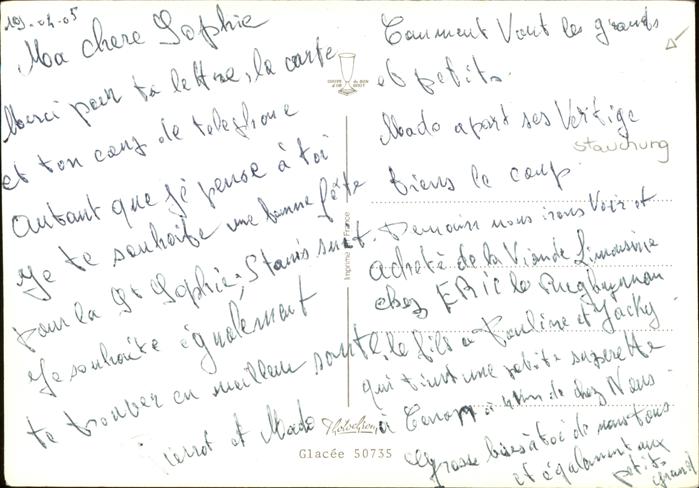 19-04-05
Ma chere Sophie
Merci pour ta lettre, la carte
et ton coup de telephone
autant que je pense à toi
Je te souhaite une bonne fête
pour la St Sophie; Stanis surt.
Je souhaite égualement
te trouver en meilleur santé,
Pierrot et Mado
Comment Vont les grands
et petits.
Mado apart ses Vertige
stauchung
tiens le coup
Demain nous irons Voir et
acheté de la Viande Limousine
chez ERIC le Rugbyman
le fils a Pauline et Jacky
qui tient une petite superette
à de chez Nous
grosse bises à toi de nous tous
et égalament aux
petits
grand
COUPE D'OR DU BON GOUT
Imprimé en France
Glacée 50735